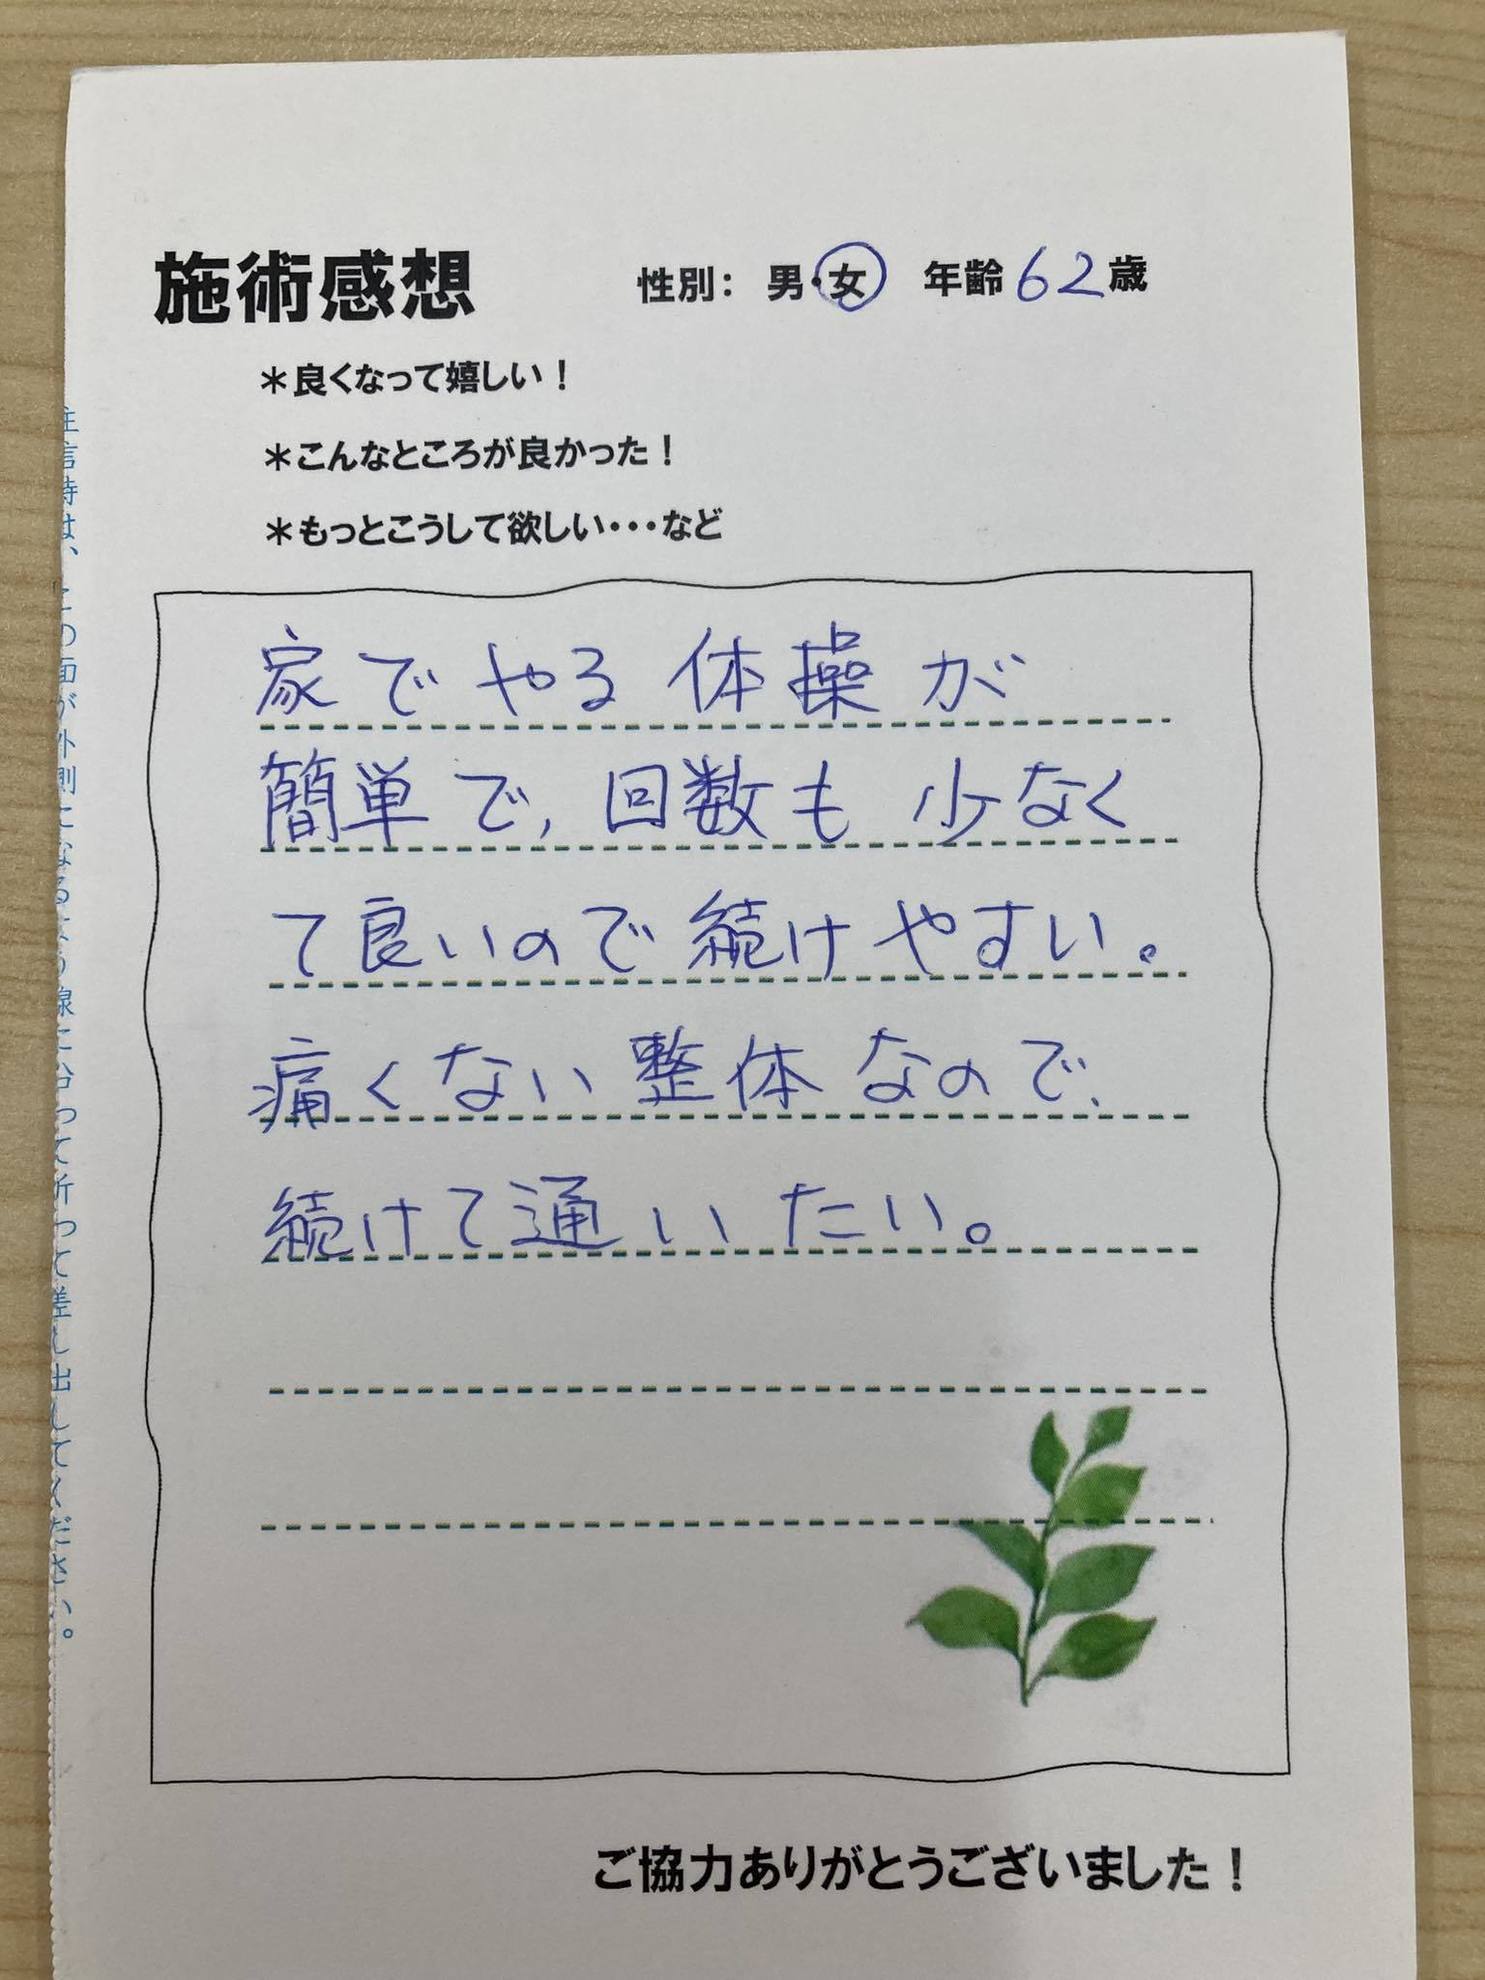 施術感想
性別： 男・女 年齢 62歳
＊良くなって嬉しい！
＊こんなところが良かった！
＊もっとこうして欲しい・・・など
家でやる体操が
簡単で、回数も少なく
て良いので続けやすい。
痛くない整体なので、
続けて通いたい。
ご協力ありがとうございました！
信時は、この面が外側になるよう線に沿って折って差し出してください。